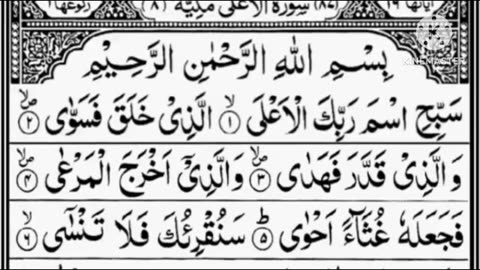 اٰیاتها ١٩ (٨٧) سُوْرَةُ الْاَعْلٰى مَكِّيَّةٌ (٨) رکوعها ١
بِسْمِ اللّٰهِ الرَّحْمٰنِ الرَّحِيْمِ
سَبِّحِ اسْمَ رَبِّكَ الْاَعْلَى ۙ﴿۱﴾ الَّذِىْ خَلَقَ فَسَوّٰى ۪ۙ﴿۲﴾
وَ الَّذِىْ قَدَّرَ فَهَدٰى ۪ۙ﴿۳﴾ وَالَّذِىْۤ اَخْرَجَ الْمَرْعٰى ۪ۙ﴿۴﴾
فَجَعَلَهٗ غُثَآءً اَحْوٰى ؕ﴿۵﴾ سَنُقْرِئُكَ فَلَا تَنْسٰٓى ۙ﴿۶﴾